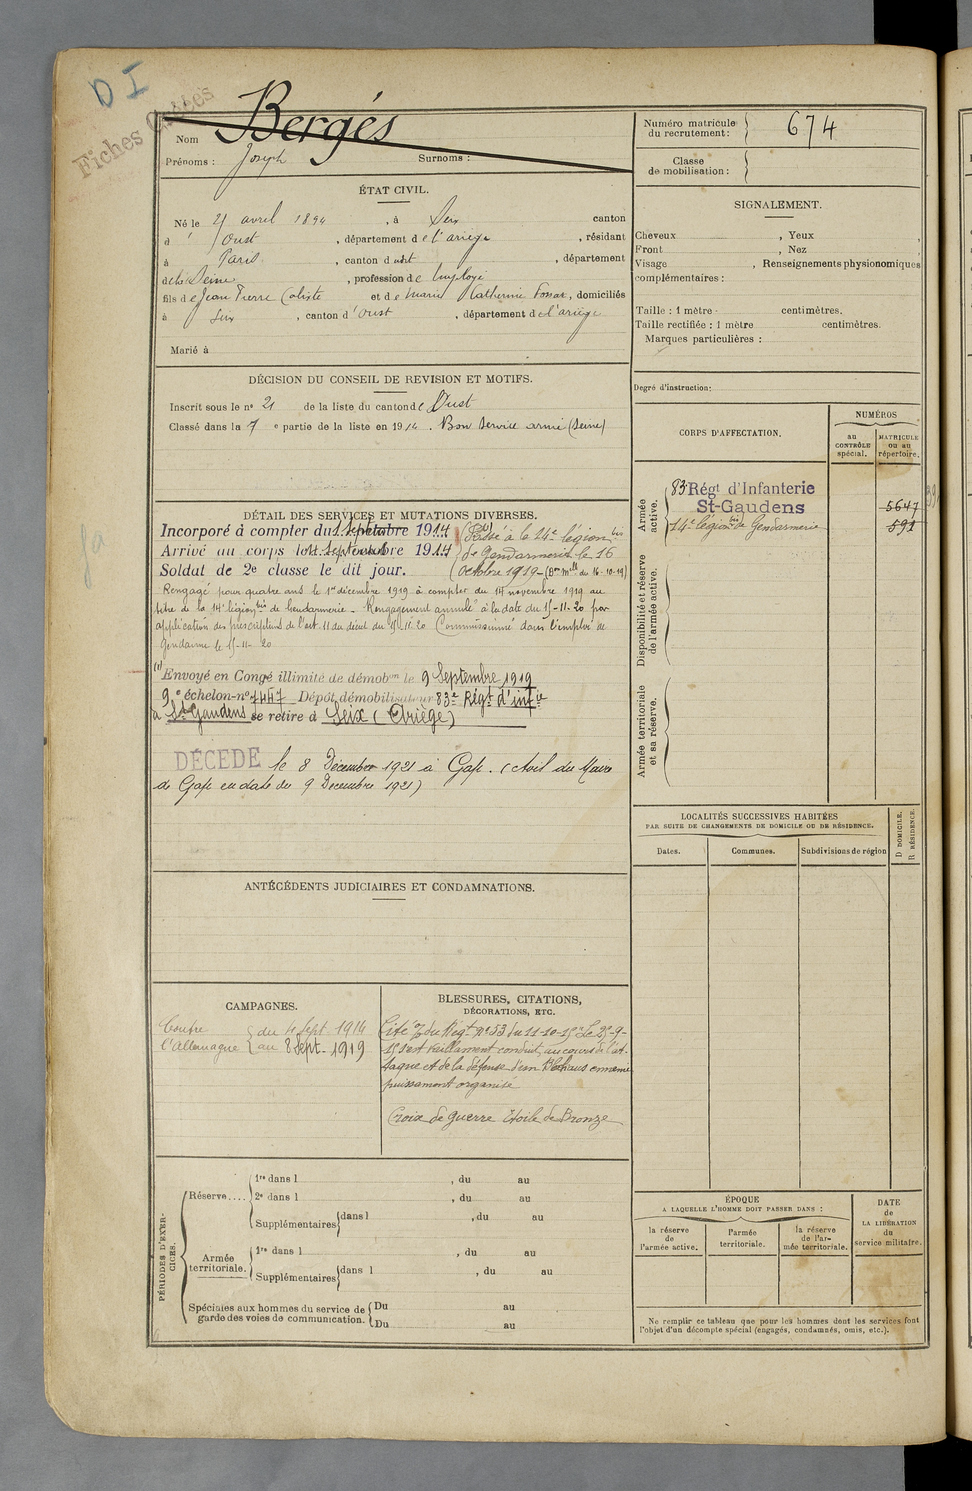 D I
Fiches Créées
Nom Bergés
Prénoms : Joseph Surnoms :
ÉTAT CIVIL.
Né le 21 avril 1894, à Seix canton
d'Oust, département de l'ariège, résidant
à Paris, canton dudit, département
de la Seine, profession de Employé
fils de Jean Pierre Caliste et de Marie Catherine, domiciliés
à Seix, canton d'Oust, département de l'ariège
Marié à
DÉCISION DU CONSEIL DE REVISION ET MOTIFS.
Inscrit sous le nº 21 de la liste du canton de Oust
Classé dans la 7e partie de la liste en 1914. Bon Service armé (Seine)
DÉTAIL DES SERVICES ET MUTATIONS DIVERSES.
Incorporé à compter du Septembre 1914
Arrivé au corps le Septembre 1914
Soldat de 2e classe le dit jour.
Passé à la 14e légion bis
de Gendarmerie le 16
Octobre 1919 - (Don mlle du 16-10-19)
Rengagé pour quatre ans le 1er décembre 1919 à compter du 14 novembre 1919 au
titre de la 14e légion bis de Gendarmerie - Rengagement annulé à la date du 15-11-20 par
application des prescriptions de l'art. 11 du décret du 15-11-20 Commissionné dans l'emploi de
gendarme le 15-11-20
(1) Envoyé en Congé illimité de démobon le 9 Septembre 1919
9e échelon-nº 4447 Dépôt démobilisateur 83e Régt d'infie
à St Gaudens se retire à Seix (Ariège)
DÉCÉDÉ le 8 Décembre 1921 à Gap. (Avis du Maire
de Gap en date du 9 Décembre 1921)
ANTÉCÉDENTS JUDICIAIRES ET CONDAMNATIONS.
CAMPAGNES.
Contre
l'Allemagne
du 4 Sept. 1914
au 8 Sept. 1919
BLESSURES, CITATIONS,
DÉCORATIONS, ETC.
Cité O/ du Régt nº 53 du 11-10-15 "Le 25-9-
15 s'est vaillament conduit, au cours de l'at-
taque et de la défense d'un Blokhaus ennemi
puissamment organisé
Croix de guerre Etoile de Bronze
PÉRIODES D'EXER-
CICES.
Réserve....
1re dans l , du au
2e dans l , du au
Supplémentaires dans l , du au
Armée
territoriale.
1re dans l , du au
Supplémentaires dans l , du au
Spéciales aux hommes du service de
garde des voies de communication.
Du au
Du au
Numéro matricule
du recrutement : 674
Classe
de mobilisation :
SIGNALEMENT.
Cheveux , Yeux ,
Front , Nez
Visage , Renseignements physionomiques
complémentaires :
Taille : 1 mètre centimètres.
Taille rectifiée : 1 mètre centimètres.
Marques particulières :
Degré d'instruction:
CORPS D'AFFECTATION.
NUMÉROS
au
CONTRÔLE
spécial.
MATRICULE
ou au
répertoire.
Armée
active.
83 Régt d'Infanterie
St-Gaudens 5647
14e légion bis de Gendarmerie 591
Disponibilité et réserve
de l'armée active.
Armée territoriale
et sa réserve.
LOCALITÉS SUCCESSIVES HABITÉES
PAR SUITE DE CHANGEMENTS DE DOMICILE OU DE RÉSIDENCE.
Dates. Communes. Subdivisions de région
D DOMICILE.
R RÉSIDENCE.
ÉPOQUE
A LAQUELLE L'HOMME DOIT PASSER DANS :
la réserve
de
l'armée active.
l'armée
territoriale.
la réserve
de l'ar-
mée territoriale.
DATE
de
LA LIBÉRATION
du
service militaire.
Ne remplir ce tableau que pour les hommes dont les services font
l'objet d'un décompte spécial (engagés, condamnés, omis, etc.).